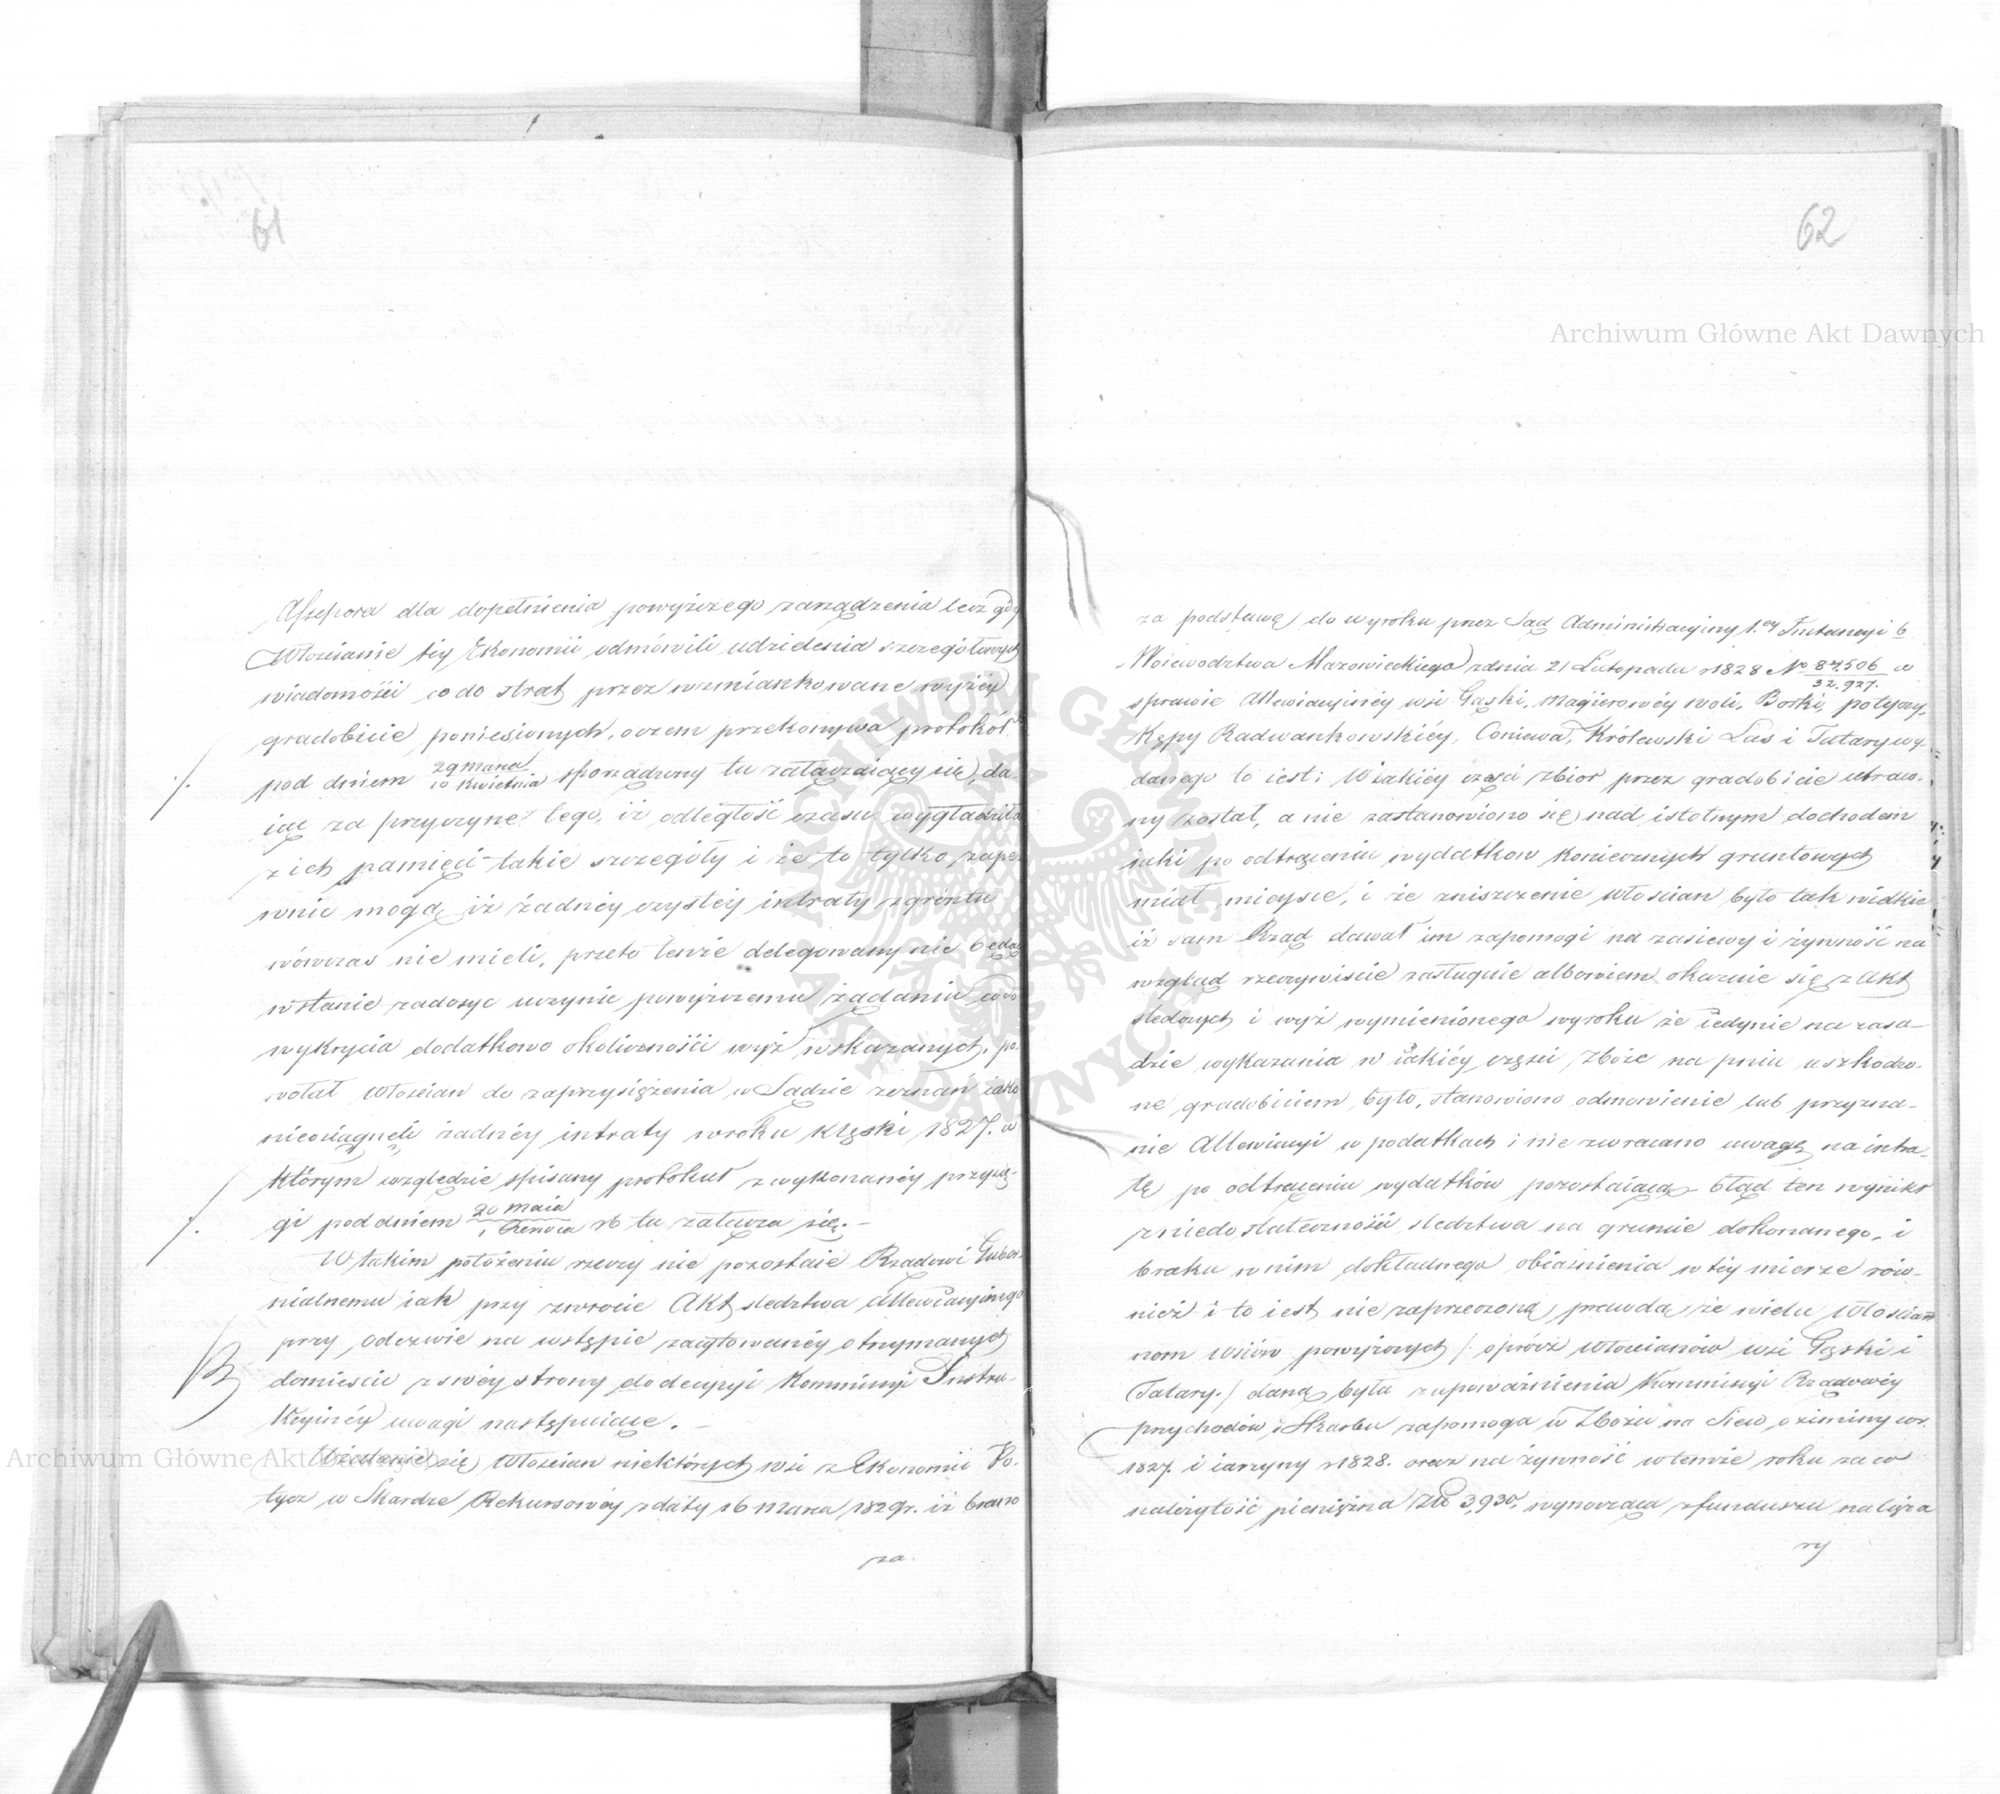 61
Assessora dla dopełnienia powyższego zarządzenia lecz gdy
Włościanie tej Ekonomii odmówili udzielenia szczegółowych
wiadomości co do strat przez wzmiankowane wyżéy
gradobicie poniesionych, o czem przekonywa protokół
pod dniem 29 Marca / 10 Kwietnia sporządzony tu załączaiący się, da-
iąc za przyczynę tego, iż odległość czasu wygładziła
z ich pamięci takie szczegóły i że to tylko zape-
wnić mogą iż żadnéy czystéy intraty z gruntu
wówczas nie mieli, przeto tenże delegowany nie będąc
w stanie zadosyć uczynić powyższemu żądaniu co do
wykrycia dodatkowo okoliczności wyż wskazanych, po-
wołał Włościan do zaprzysiężenia w Sądzie zeznań iako
nieosiągneli żadnéy intraty w roku klęski 1827. w
którym względzie spisany protokuł z wykonanéy przysię-
gi pod dniem 20 Maia / 1 Czerwca rb tu załącza się. —
W takim położeniu rzeczy nie pozostaie Rządowi Guber-
nialnemu iak przy zwrocie Akt śledztwa Allewiacyinego
przy odezwie na wstępie zacytowanéy otrzymanych
domieścić z swéy strony do decyzyi Kommissyi Instru-
kcyinéy uwagi następuiące. —
Użalanie się Włościan niektórych wsi z Ekonomii Po-
tycz w Skardze Rekursowéy z daty 16 Marca 1829 r. iż brano
za
62
za podstawę do wyroku przez Sąd Administracyiny 1.ey Instancyi b
Woiewodztwa Mazowieckiego z dnia 21 Listopada r 1828 No 84.506 / 32.927. w
sprawie Allewiacyinéy wsi Gąski, Magierowéy woli, Borki, Potyczy,
Kępy Radwankowskiéy, Coniewa, Królewski Las i Tatary wy-
danego to iest: W iakiéy części zbior przez gradobicie utraco-
ny został, a nie zastanowiono się nad istotnym dochodem
iaki po odtrąceniu wydatkow koniecznych gruntowych
miał mieysce, i że zniszczenie Włoscian było tak wielkie
iż sam Rząd dawał im zapomogi na zasiewy i żywność na
wzgląd rzeczywiscie zasługuie albowiem okazuie się z Akt
śledczych i wyż wymienionego wyroku że iedynie na zasa-
dzie wykazania w iakiéy części zboże na pniu uszkodzo-
ne gradobiciem było, stanowiono odmowienie lub przyzna-
nie Allewiacyi w podatkach i nie zwracano uwagę na intra-
tę po odtrąceniu wydatków pozostaiącą. błąd ten wynikł
z niedostateczności śledztwa na gruncie dokonanego, i
braku w nim dokładnego obiaśnienia w téy mierze rów-
nież i to iest nie zaprzeczoną prawdą, że wielu Włościa-
nom wsiów powyższych /: oprócz Włościanów wsi Gąski i
Tatary :/ daną była z upoważnienia Kommissyi Rządowéy
przychodów i Skarbu zapomoga w Zbożu na Siew oziminy w r.
1827. i iarzyny r 1828. oraz na żywność w temże roku za co
należytość pieniężna Złt 3,930. wynosząca z funduszu należą
cy